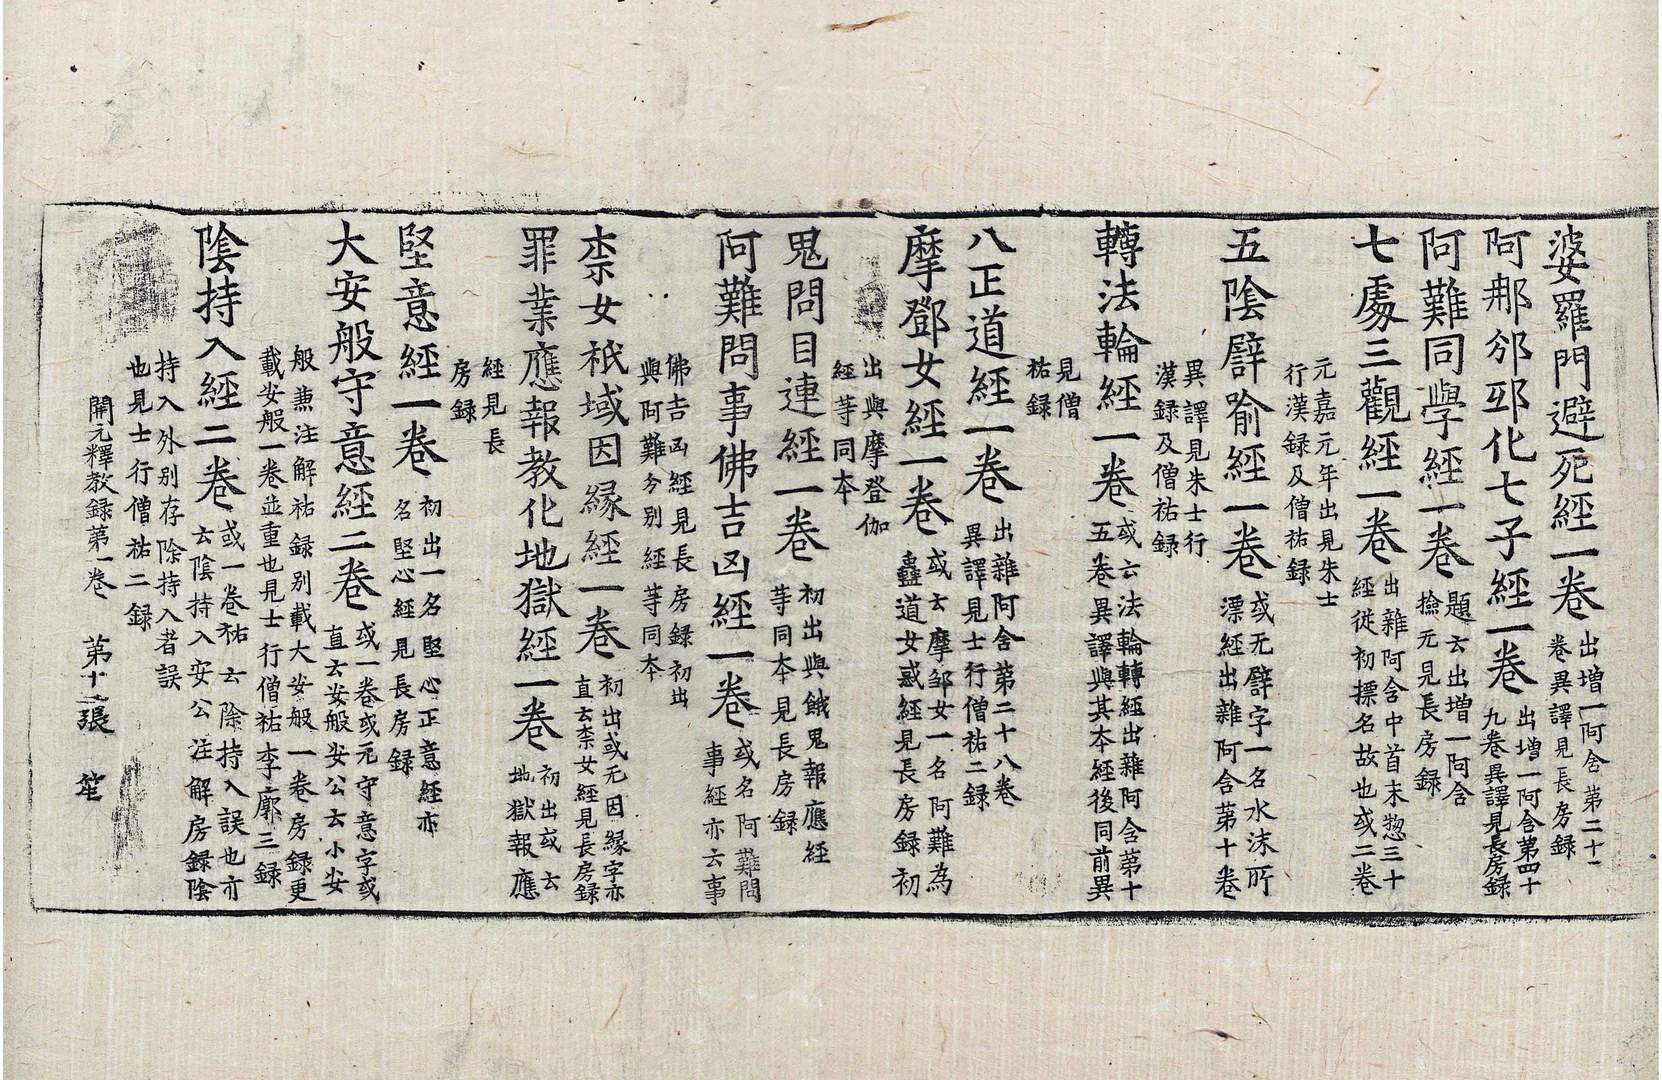 婆羅門避死經一卷 出增一阿含第二十一
卷異譯見長房録
阿那邠邸化七子經一卷 出增一阿含第四十
九卷異譯見長房録
阿難同學經一卷 題云出增一阿含
撿元見長房録
七處三觀經一卷 出雜阿含中首末惣三十
經從初摽名故也或二卷
元嘉元年出見朱士
行漢録及僧祐録
五陰譬喻經一卷 或无譬字一名水沫所
漂經出雜阿含第十卷
異譯見朱士行
漢録及僧祐録
轉法輪經一卷 或云法輪轉經出雜阿含第十
五卷異譯與其本經後同前異
見僧
祐録
八正道經一卷 出雜阿含第二十八卷
異譯見士行僧祐二録
摩鄧女經一卷 或云摩邹女一名阿難為
蠱道女惑經見長房録初
出與摩登伽
經等同本
鬼問目連經一卷 初出與餓鬼報應經
等同本見長房録
阿難問事佛吉凶經一卷 或名阿難問
事經亦云事
佛吉凶經見長房録初出
與阿難今别經等同本
柰女祇域因緣經一卷 初出或无因緣字亦
直云柰女經見長房録
罪業應報教化地獄經一卷 初出或云
地獄報應
經見長
房録
堅意經一卷 初出一名堅心正意經亦
名堅心經見長房録
大安般守意經二卷 或一卷或无守意字或
直云安般安公云小安
般兼注解祐録别載大安般一卷房録更
載安般一卷並重也見士行僧祐李廓三録
陰持入經二卷 或一卷祐云除持入誤也亦
云陰持入安公注解房録陰
持入外别存除持入者誤
也見士行僧祐二録
開元釋教録第一卷 第十二張 笙